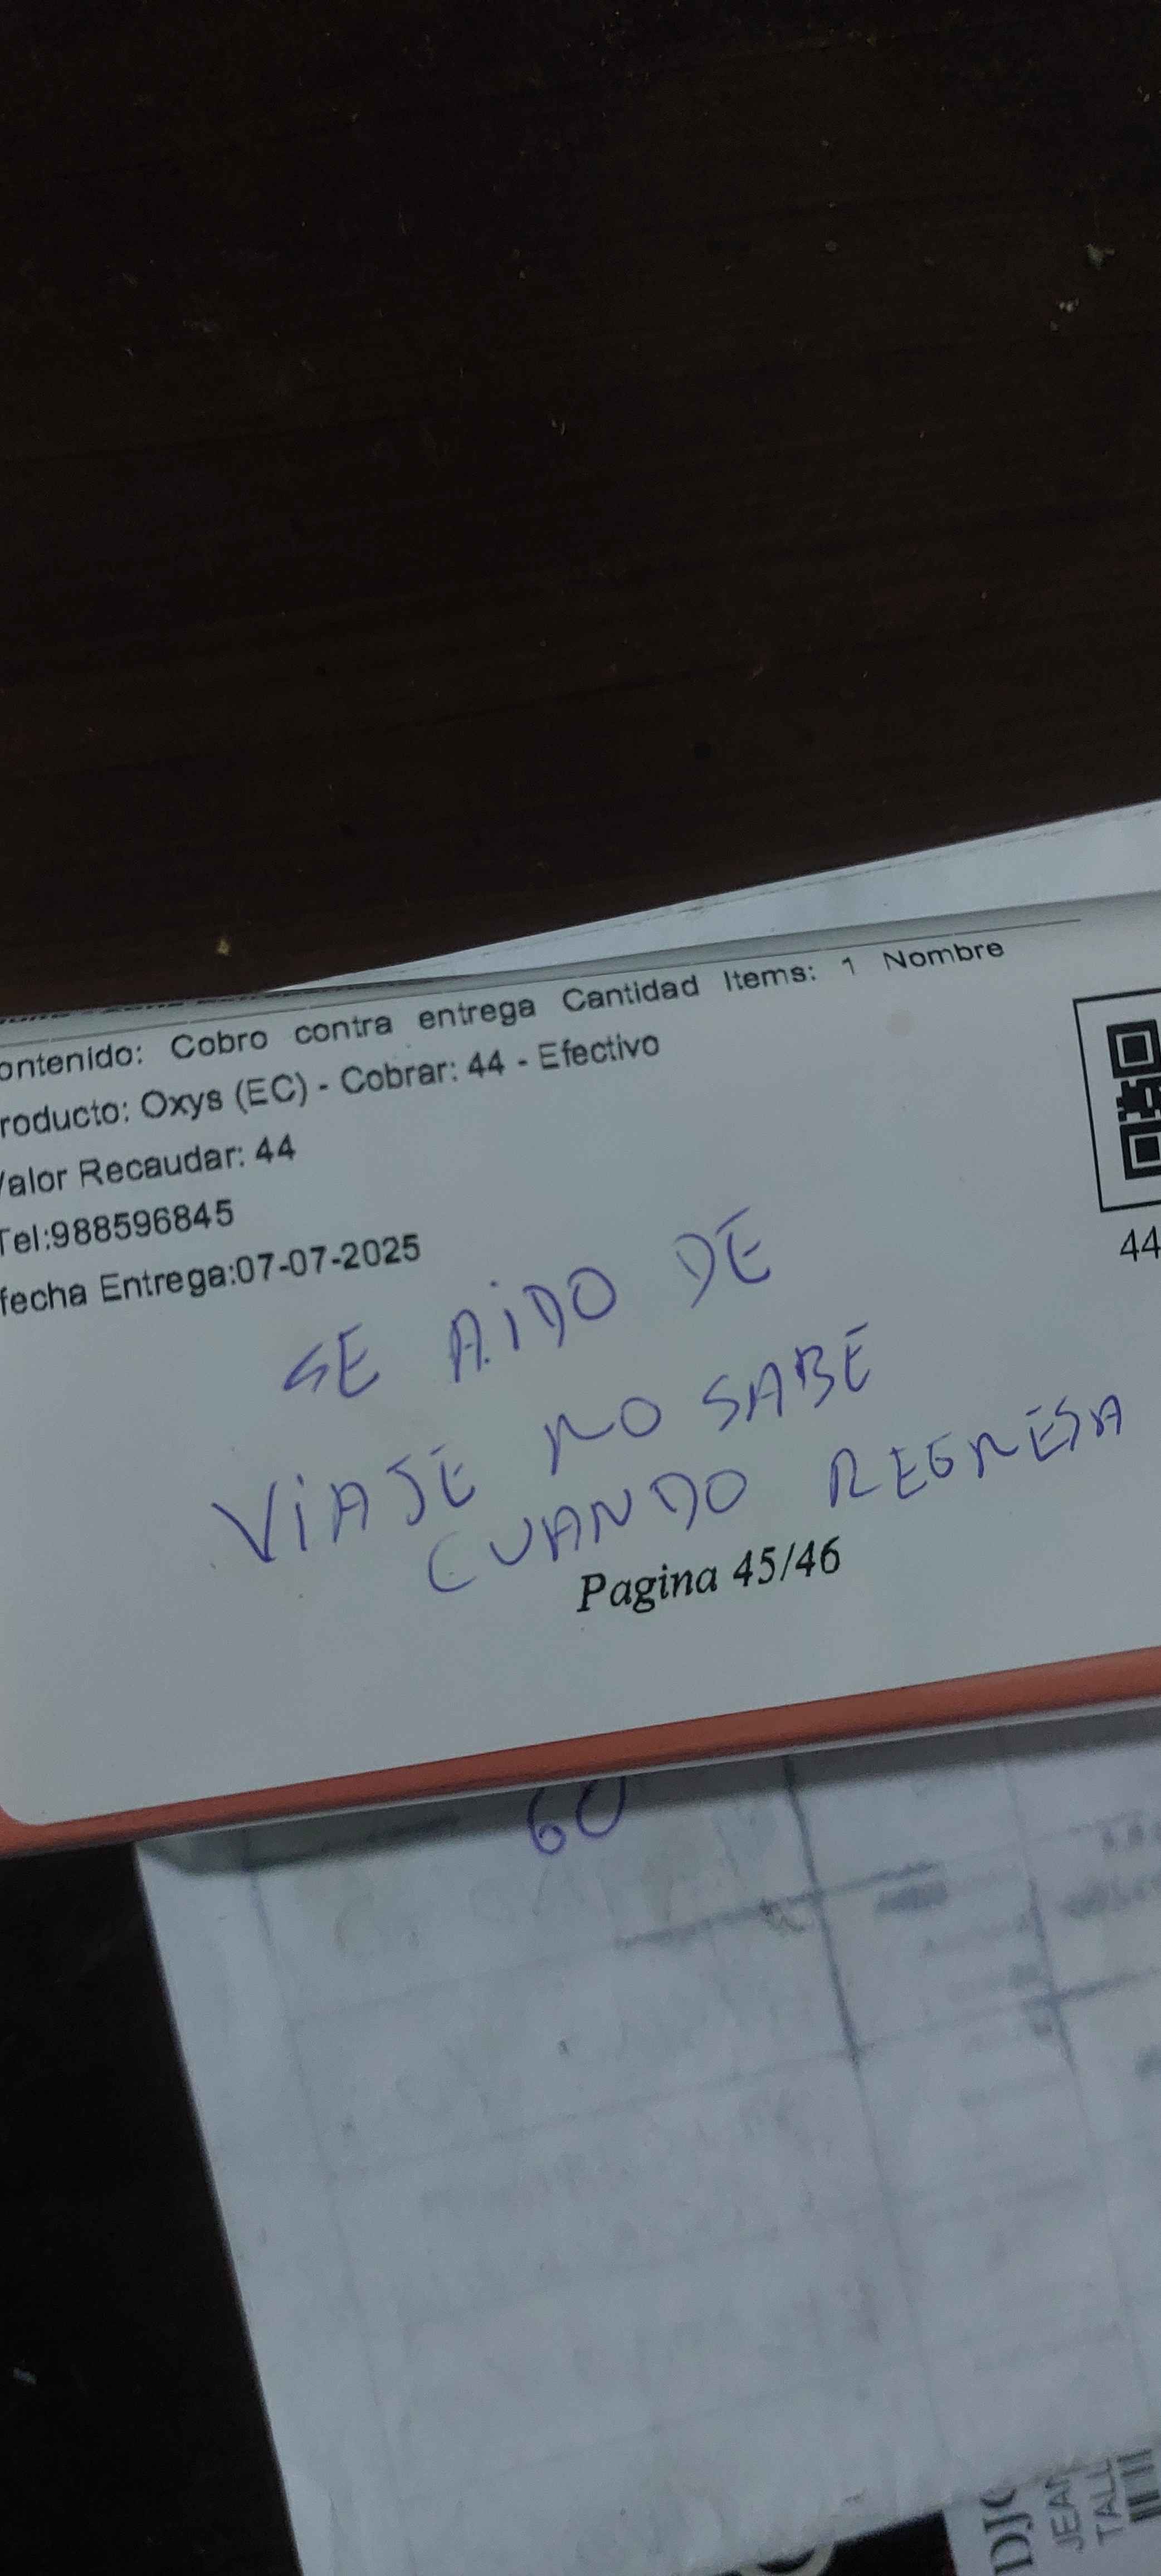 ontenido: Cobro contra entrega Cantidad Items: 1 Nombre
roducto: Oxys (EC) - Cobrar: 44 - Efectivo
Valor Recaudar: 44
Tel:988596845
fecha Entrega:07-07-2025
44
SE AIDO DE
VIAJE NO SABE
CUANDO REGRESA
Pagina 45/46
60
DJ
JEAN
TALL